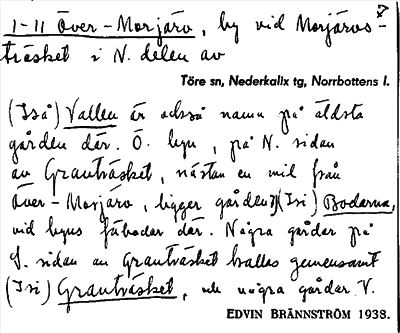 1-11 Över-Morjärv, by vid Morjärvs-
träsket i N. delen av
Töre sn, Nederkalix tg, Norrbottens l.
(Iså) Vallen är också namn på äldsta
gården där. Ö. byn, på N. sidan
av Granträsket, nästan en mil från
Över-Morjärv, ligger gården (Isi) Bodarna,
vid byns fäbodar där. Några gårdar på
S. sidan av Granträsket kallas gemensamt
(Isi) Granträsket, några gårdar V.
EDVIN BRÄNNSTRÖM 1938.